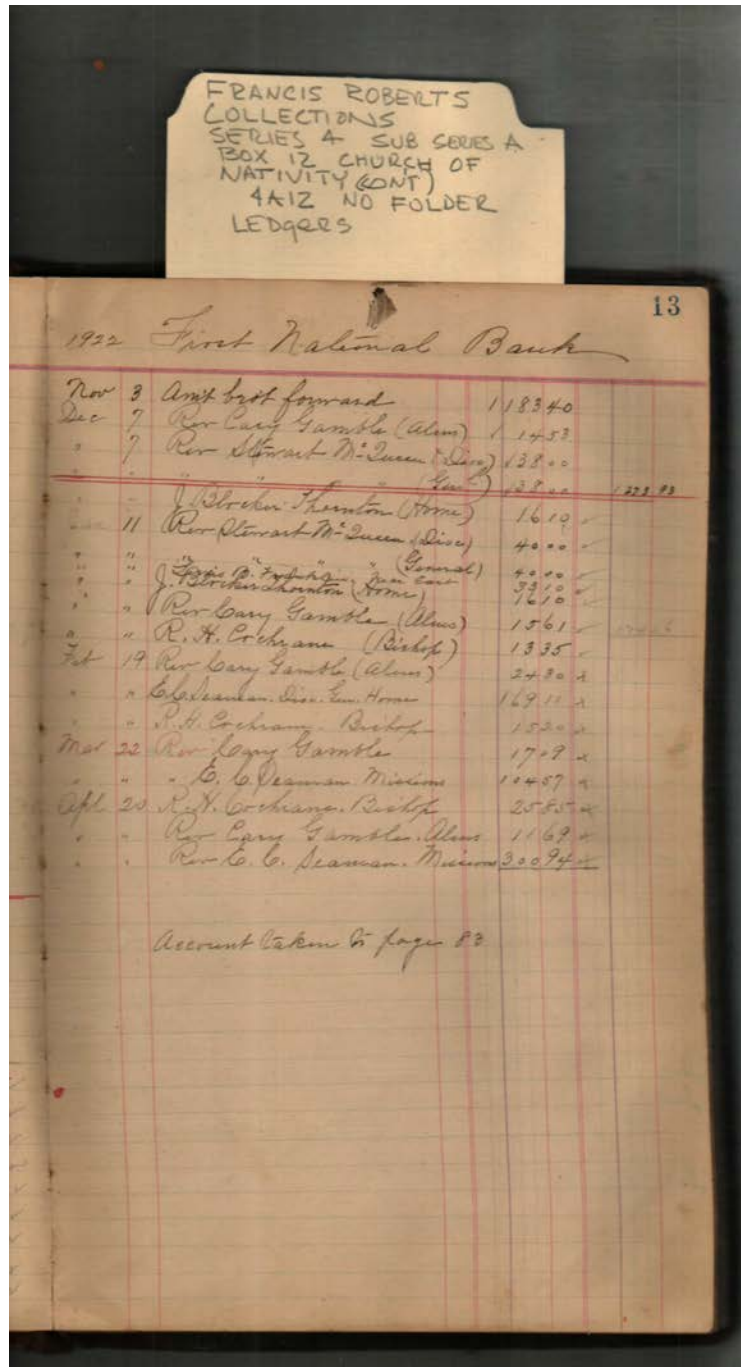 FRANCIS ROBERTS
COLLECTIONS
SERIES 4 SUB SERIES A
BOX 12 CHURCH OF
NATIVITY (CONT)
4A12 NO FOLDER
LEDgERS
13
1922 First National Bank
Nov 3 Am't brot forward 1 183 40
Dec 7 Rev Cary Gamble (Alms) 14 53
" 7 Rev Stewart McQueen (Disc) 138 00
" " " (Gen) 138 00 1 273 93
J. Blocker Thornton (Home) 16 10
11 Rev Stewart McQueen (Disc) 40 00
" " " " " (General) 40 00
" " Near East 33 10
" " J. Blocker Thornton (Home) 16 10
" " Rev Cary Gamble (Alms) 15 61
" " R. H. Cochrane (Bishop) 13 35
Feb 19 Rev Cary Gamble (Alms) 24 80 x
" " E. C. Seaman. Disc. Gen. Home 169 11 x
" " R. H. Cochrane. Bishop 15 20 x
Mar 22 Rev Cary Gamble 17 09 x
" " " E. C. Seaman Missions 104 57 x
Apl 20 R. H. Cochrane. Bishop 25 85 x
" " Rev Cary Gamble. Alms 11 69 x
" " Rev E. C. Seaman. Missions 300 94 x
Account taken to page 83